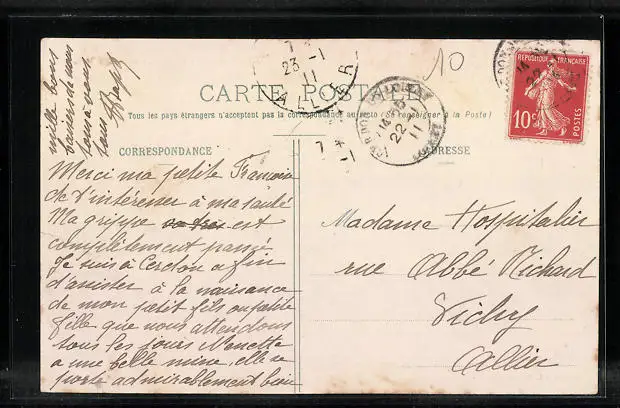 mille bons
baisers de nous
tous à vous
tous
CARTE POSTALE
Tous les pays étrangers n'acceptent pas la correspondance au recto (Se renseigner à la Poste)
CORRESPONDANCE
Merci ma petite
de t'intéresser à ma santé
Ma grippe est
complètement passée
Je suis à Cerdon afin
d'assister à la naissance
de mon petit fils ou petite
fille que nous attendons
tous les jours Menette
a une belle mine, elle se
porte admirablement bien
7
23 -1
11
ALLIER
7 *
-1
22
11
10
REPUBLIQUE FRANÇAISE
10c
POSTES
ADRESSE
Madame Hospitalier
rue Abbé Richard
Vichy
Allier